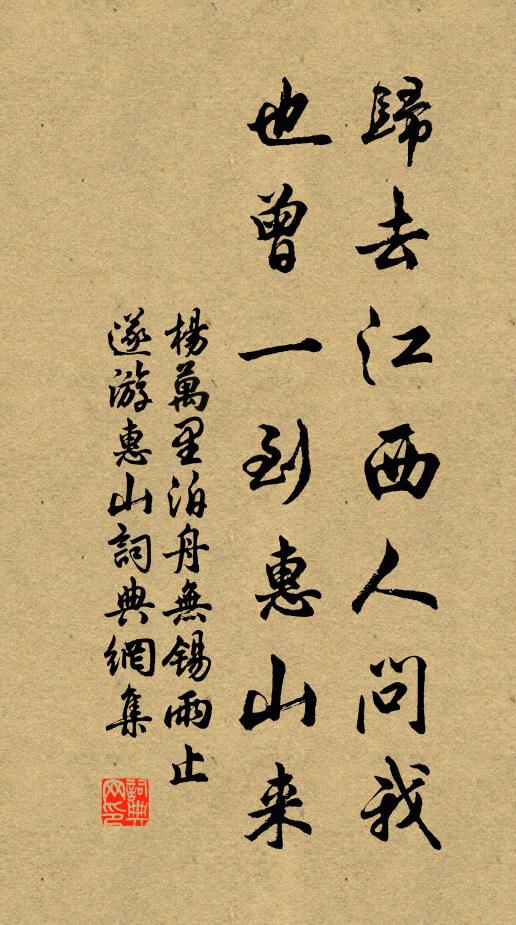 歸去江西人問我
也曾一到惠山来
楊萬里泊舟無錫雨止
遂游惠山詞典網集
詞典
网印